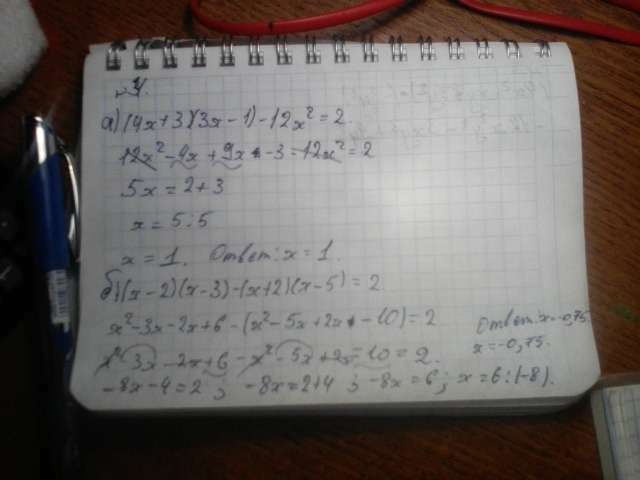 № 4.
а) (4x+3)(3x-1)-12x²=2.
12x²-4x+9x-3-12x²=2
5x=2+3
x=5:5
x=1. Ответ: x=1.
б) (x-2)(x-3)-(x+2)(x-5)=2
x²-3x-2x+6-(x²-5x+2x-10)=2
x²-3x-2x+6-x²-5x+2x-10=2.
-8x-4=2; -8x=2+4; -8x=6; x=6:(-8).
x=-0,75.
Ответ: x=-0,75.